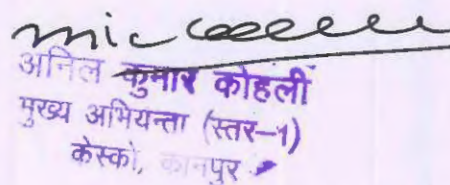 अनिल कुमार कोहली
मुख्य अभियन्ता (स्तर-1)
केस्को, कानपुर